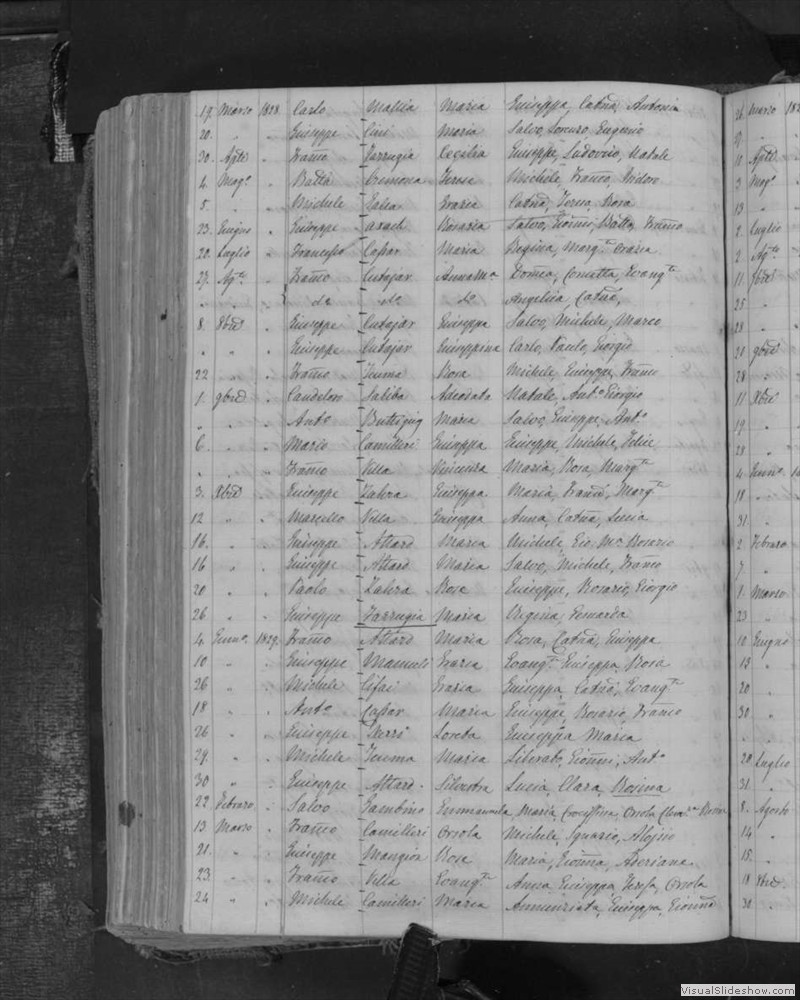 19. Marzo 1828 Carlo Mallia Maria Giuseppa, Catna, Antonia
20. " " Giuseppe Cini Maria Salvo, Lorenzo, Eugenio
30. Aple " Franco Farrugia Cecilia Giuseppe, Ludovico, Natale
4. Mago " Batta Cremona Teresa Michele, Franco, Isidoro
5 " " Michele Galea Grazia Catna, Teresa, Rosa
23. Giugno " Giuseppe Rosaria Salvo, Gionni, Batta, Franco
20. Luglio " Francesco Caspar Maria Regina, Margta Grazia
27. Agto " Franco Cutajar Anna Ma Domca, Concetta, Evangta
" " " do do do Angelica, Catna,
8. 8bre " Giuseppe Cutajar Giuseppa Salvo, Michele, Marco
" " " Giuseppe Cutajar Giuseppina Carlo, Paulo, Giorgio
22 " " Franco Rosa Michele, Giuseppe, Franco
1. 9bre " Candeloro Saliba Adeodata Natale, Anto Giorgio
" " " Anto Buttigieg Maria Salvo, Giuseppe, Anto
6. " " Mario Camilleri Giuseppa Giuseppe, Michele, Felice
" " " Franco Villa Vincenza Maria, Rosa, Margta
3. Xbre " Giuseppe Zahra Giuseppa Maria, Franca, Margta
12 " " Marcello Villa Giuseppa Anna, Catna, Lucia
16. " " Giuseppe Attard Maria Michele, Gio. Ma Rosario
16 " " Giuseppe Attard Maria Salvo, Michele, Franco
20 " " Paolo Zahra Rosa Giuseppe, Rosario, Giorgio
26 " " Giuseppe Farrugia Maria Virginia,
4. Genno. 1829. Franco Attard Maria Rosa, Catna, Giuseppa
10 " " Giuseppe Mamueli Grazia Evangta Giuseppa, Rosa
26 " " Michele Cifai Grazia Giuseppa, Catna, Evangta
18 " " Anto Caspar Maria Giuseppe, Rosario, Franco
26 " " Giuseppe Loreta Giuseppa Maria
29. " " Michele Maria Liberato, Gionni, Anto
30 " " Giuseppe Attard Silvestra Lucia, Clara, Rosina
22 Febraro " Salvo Gambino Emmanuela Maria, Crocifissa, Orsola
13 Marzo " Franco Camilleri Orsola Michele, Ignazio, Alojsio
21. " " Giuseppe Mangion Rosa Maria, Gionna, Aderiana
23 " " Franco Villa Evangta Anna, Giuseppa, Teresa, Orsola
24 " " Michele Camilleri Maria Annunziata, Giuseppa, Gionna
26. Marzo 182
11 Aple
3 Mago
13 "
2. Luglio
2. Agto
11. 9bre
25 "
28 "
21 9bre
28 "
11 Xbre
19 "
28 "
4 Genno. 1
18 "
31 "
2. Febraro
7 "
1. Marzo
23 "
10 Giugno
13 "
20 "
30 "
" "
20 Luglio
31. "
8. Agosto
14 "
15. "
18 8bre
30 "
VisualSlideshow.com